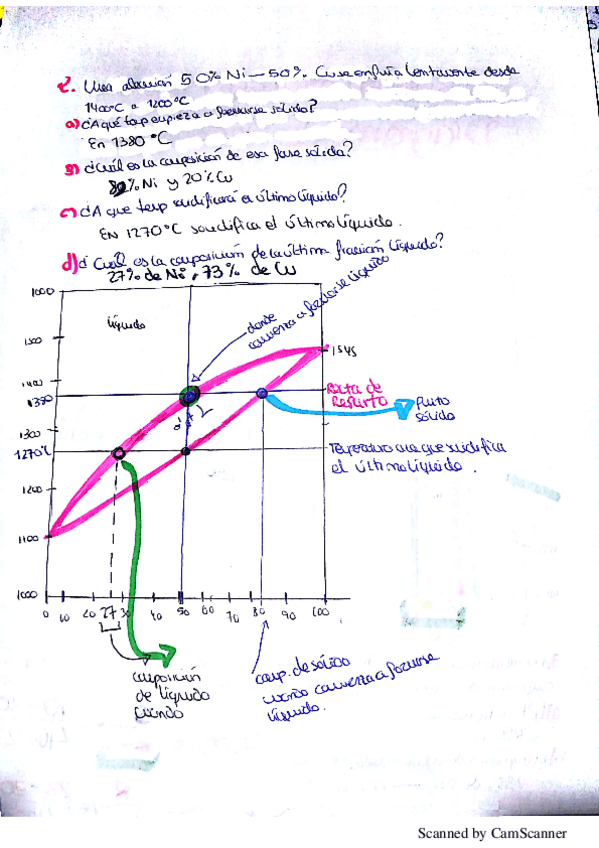 2. Una aleación 50% Ni - 50% Cu se enfría lentamente desde
1400°C a 1200°C
a) ¿A qué temp empieza a formarse sólido?
En 1380 °C
B) ¿Cuál es la composición de esa fase sólida?
80% Ni y 20% Cu
c) ¿A que temp solidificará el último líquido?
EN 1270°C solidifica el último líquido.
d) ¿Cuál es la composición de la última fracción líquido?
27% de Ni, 73% de Cu
1000
líquido
donde
comienza a formarse líquido
1500
1545
1400
1380
Recta de
Reparto
Punto
sólido
1300
1270°C
Temperatura a la que solidifica
el último líquido.
1200
1100
1000
0 10 20 27 30 40 50 60 70 80 90 100
composición
de líquido
cuando
comp. de sólido
cuando comienza a formarse
líquido.
Scanned by CamScanner